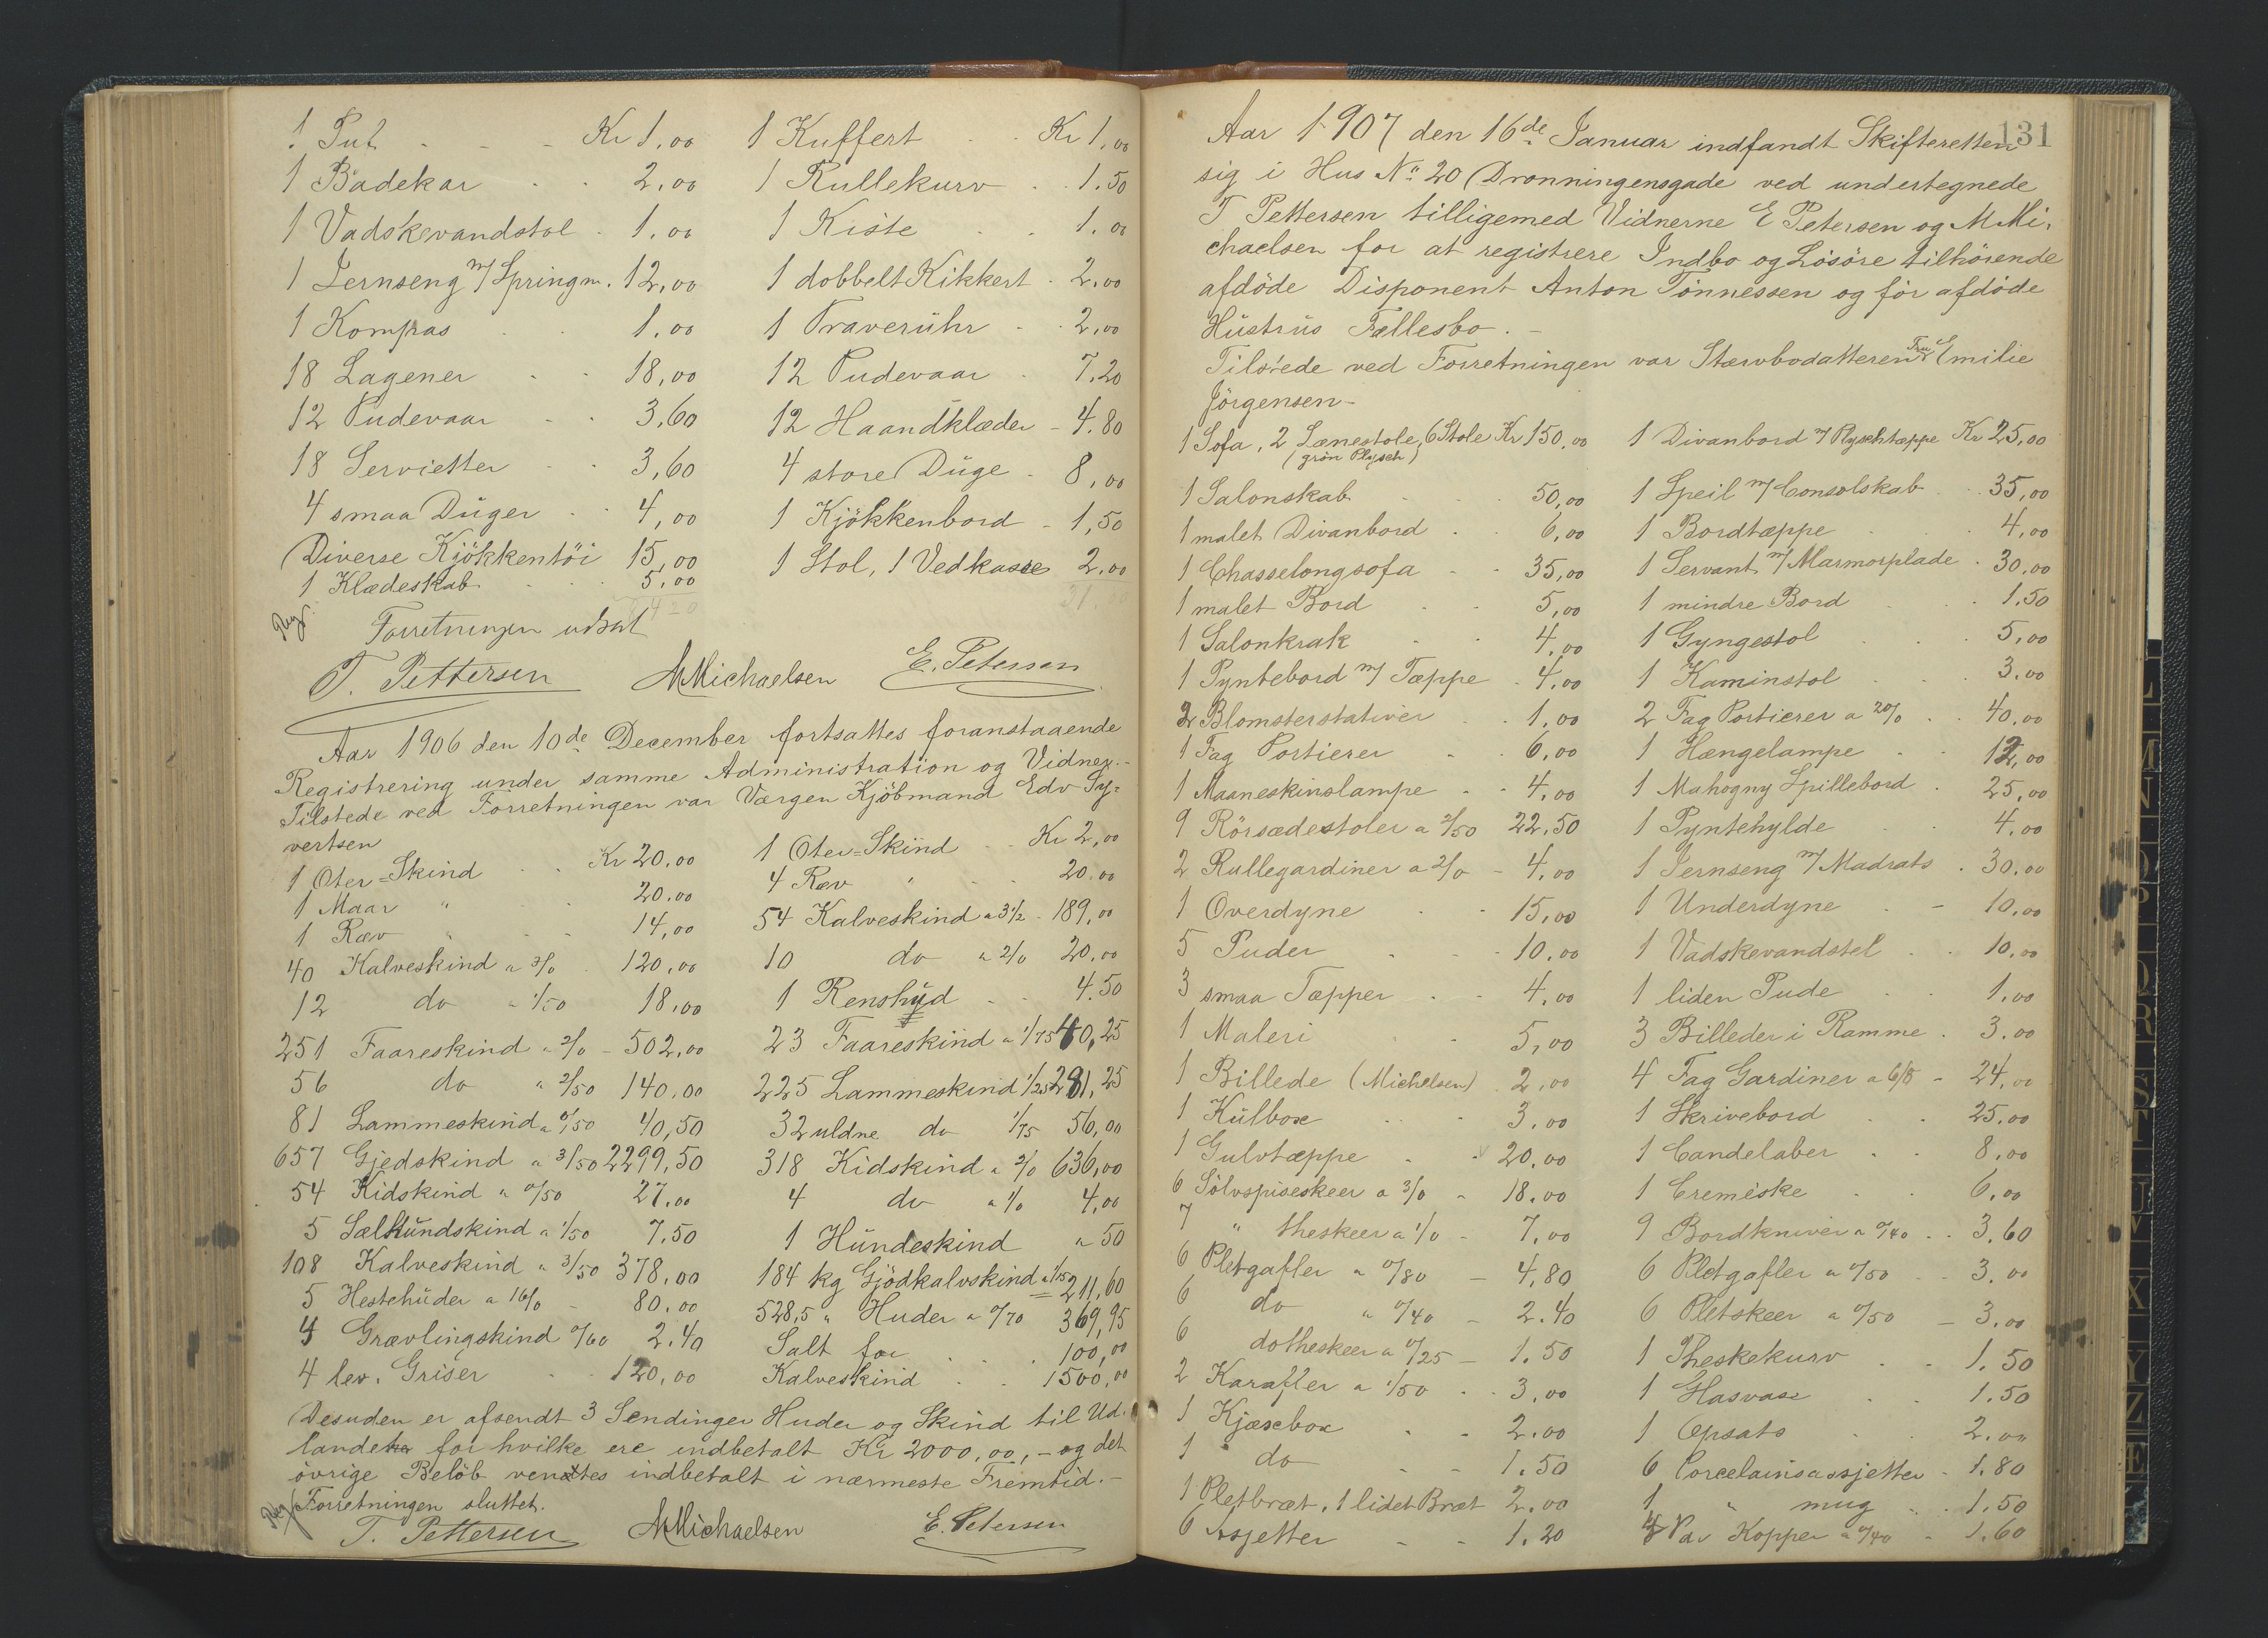 1 Pult - - - Kr 1,00
1 Badekar - - 2,00
1 Vadskevandstol - 1,00
1 Jernseng m/ Springm. 12,00
1 Kompas - - 1.00
18 Lagener - - 18,00
12 Pudevaar - - 3,60
18 Servietter - - 3,60
4 smaa Duger - - 4,00
Diverse Kjökkentöi 15,00
1 Klædeskab - - - 5,00
1 Kuffert - - Kr 1,00
1 Rullekurv - - 1.50
1 Kiste - - 1.00
1 dobbelt Kikkert - 2,00
1 Traveruhr - - 2,00
12 Pudevaar - 7.20
12 Haandklæder - 4.80
4 store Duge - 8,00
1 Kjökkenbord - 1,50
1 Stol, 1 Vedkasse 2,00
Reg.
Forretningen udsat
T. Pettersen MMichaelsen E. Petersen
Aar 1906 den 10de December fortsattes foranstaaende
Registrering under samme Administration og Vidner.-
Tilstede ved Forretningen var Værgen Kjöbmand Edv Sy-
vertsen
1 Oter-Skind - - Kr 20,00
1 Maar " - 20.00
1 Ræv " - - 14,00
40 Kalveskind a 3/0 - 120,00
12 do a 1/50 18,00
251 Faareskind a 2/0 - 502,00
56 do a 2/50 140.00
81 Lammeskind a 0/50 40,50
657 Gjedskind a 3/50 2299,50
54 Kidskind a 0/50 27.00
5 Sælhundskind a 1/50 7.50
108 Kalveskind a 3/50 378,00
5 Hestehuder a 16/0 - 80.00
4 Grævlingskind 0/60 2.40
4 lev. Griser - - 120,00
1 Oter-Skind - - Kr 2,00
4 Ræv " - - 20.00
54 Kalveskind a 3 1/2 - 189,00
10 do a 2/0 20.00
1 Renshud - - 4.50
23 Faareskind a 1/75 40,25
225 Lammeskind 1/25 281,25
32 uldne do 1/75 56,00
318 Kidskind a 2/0 636,00
4 do a 1/0 4,00
1 Hundeskind " 50
184 kg Gjödkalvskind a 1/15 211,60
528,5 " Huder a 0/70 369,95
Salt for - - - 100,00
Kalveskind - - 1500,00
Desuden er afsendt 3 Sendinger Huder og Skind til Ud-
landet for hvilke ere indbetalt Kr 2000,00,- og det
övrige Belöb ventes indbetalt i nærmeste Fremtid.-
Reg.
Forretningen sluttet.
T. Pettersen MMichaelsen E. Petersen
131
Aar 1907 den 16de Januar indfandt Skifteretten
sig i Hus No 20 Dronningensgade ved undertegnede
T Pettersen tilligemed Vidnerne E Petersen og M Mi-
chaelsen for at registrere Indbo og Lösöre tilhörende
afdöde Disponent Anton Tönnessen og för afdöde
Hustrus Fællesbo.-
Tilstede ved Forretningen var Stærvbodatteren Fru Emilie
Jörgensen-
1 Sofa, 2 Lænestole, 6 Stole Kr 150,00
(grön Plysch)
1 Salonskab - - - 50,00
1 malet Divanbord - - 6,00
1 Chasselongsofa - - 35,00
1 malet Bord - - 5,00
1 Salonkrak - - 4,00
1 Pyntebord m/ Tæppe - 4,00
2 Blomsterstativer - - 1,00
1 Fag Portierer - 6,00
1 Maaneskinslampe - - 4,00
9 Rörsædestoler a 2/50 22.50
2 Rullegardiner a 2/0 - 4,00
1 Overdyne - - 15,00
5 Puder - - - 10.00
3 smaa Tæpper - - 4,00
1 Maleri - 5,00
1 Billede (Michelsen) - 2,00
1 Kulbox - - 3,00
1 Gulvtæppe - - 20.00
6 Sölvspiseskeer a 3/0 - 18.00
7 " theskeer a 1/0 - 7,00
6 Pletgafler a 0/80 - 4,80
6 do a 0/40 - 2.40
6 do theskeer a 0/25 - 1.50
2 Karafler a 1/50 - - 3,00
1 Kjæxebox - - 2.00
1 do - - 1.50
1 Pletbræt, 1 lidet Bræt 2.00
6 Assjetter - - 1.20
1 Divanbord m/ Plyschtæppe Kr 25,00
1 Speil m/ Consolskab - - 35,00
1 Bordtæppe - - 4,00
1 Servant m/ Marmorplade - 30.00
1 mindre Bord - - 1.50
1 Gyngestol - - - 5,00
1 Kaminstol - - 3.00
2 Fag Portierer a 20/0 - - 40,00
1 Hængelampe - - 12,00
1 Mahogny Spillebord - 25,00
1 Pyntehylde - - 4,00
1 Jernseng m/ Madrats - 30.00
1 Underdyne - - 10,00
1 Vadskevandstel - - 10,00
1 liden Pude - - 1,00
3 Billeder i Ramme - 3.00
4 Fag Gardiner a 6/0 - 24,00
1 Skrivebord - - 25.00
1 Candelaber - - 8,00
1 Cremeske - - 6,00
9 Bordkniver a 0/40 - - 3.60
6 Pletgafler a 0/50 - - 3.00
6 Pletskeer a 0/50 - 3,00
1 Theskekurv - - 1.50
1 Glasvase - - 1.50
1 Opsats - - 2.00
6 Porcelainsassjetter - 1.80
1 " mug - - 1.50
4 Par Kopper a 0/40 - 1.60